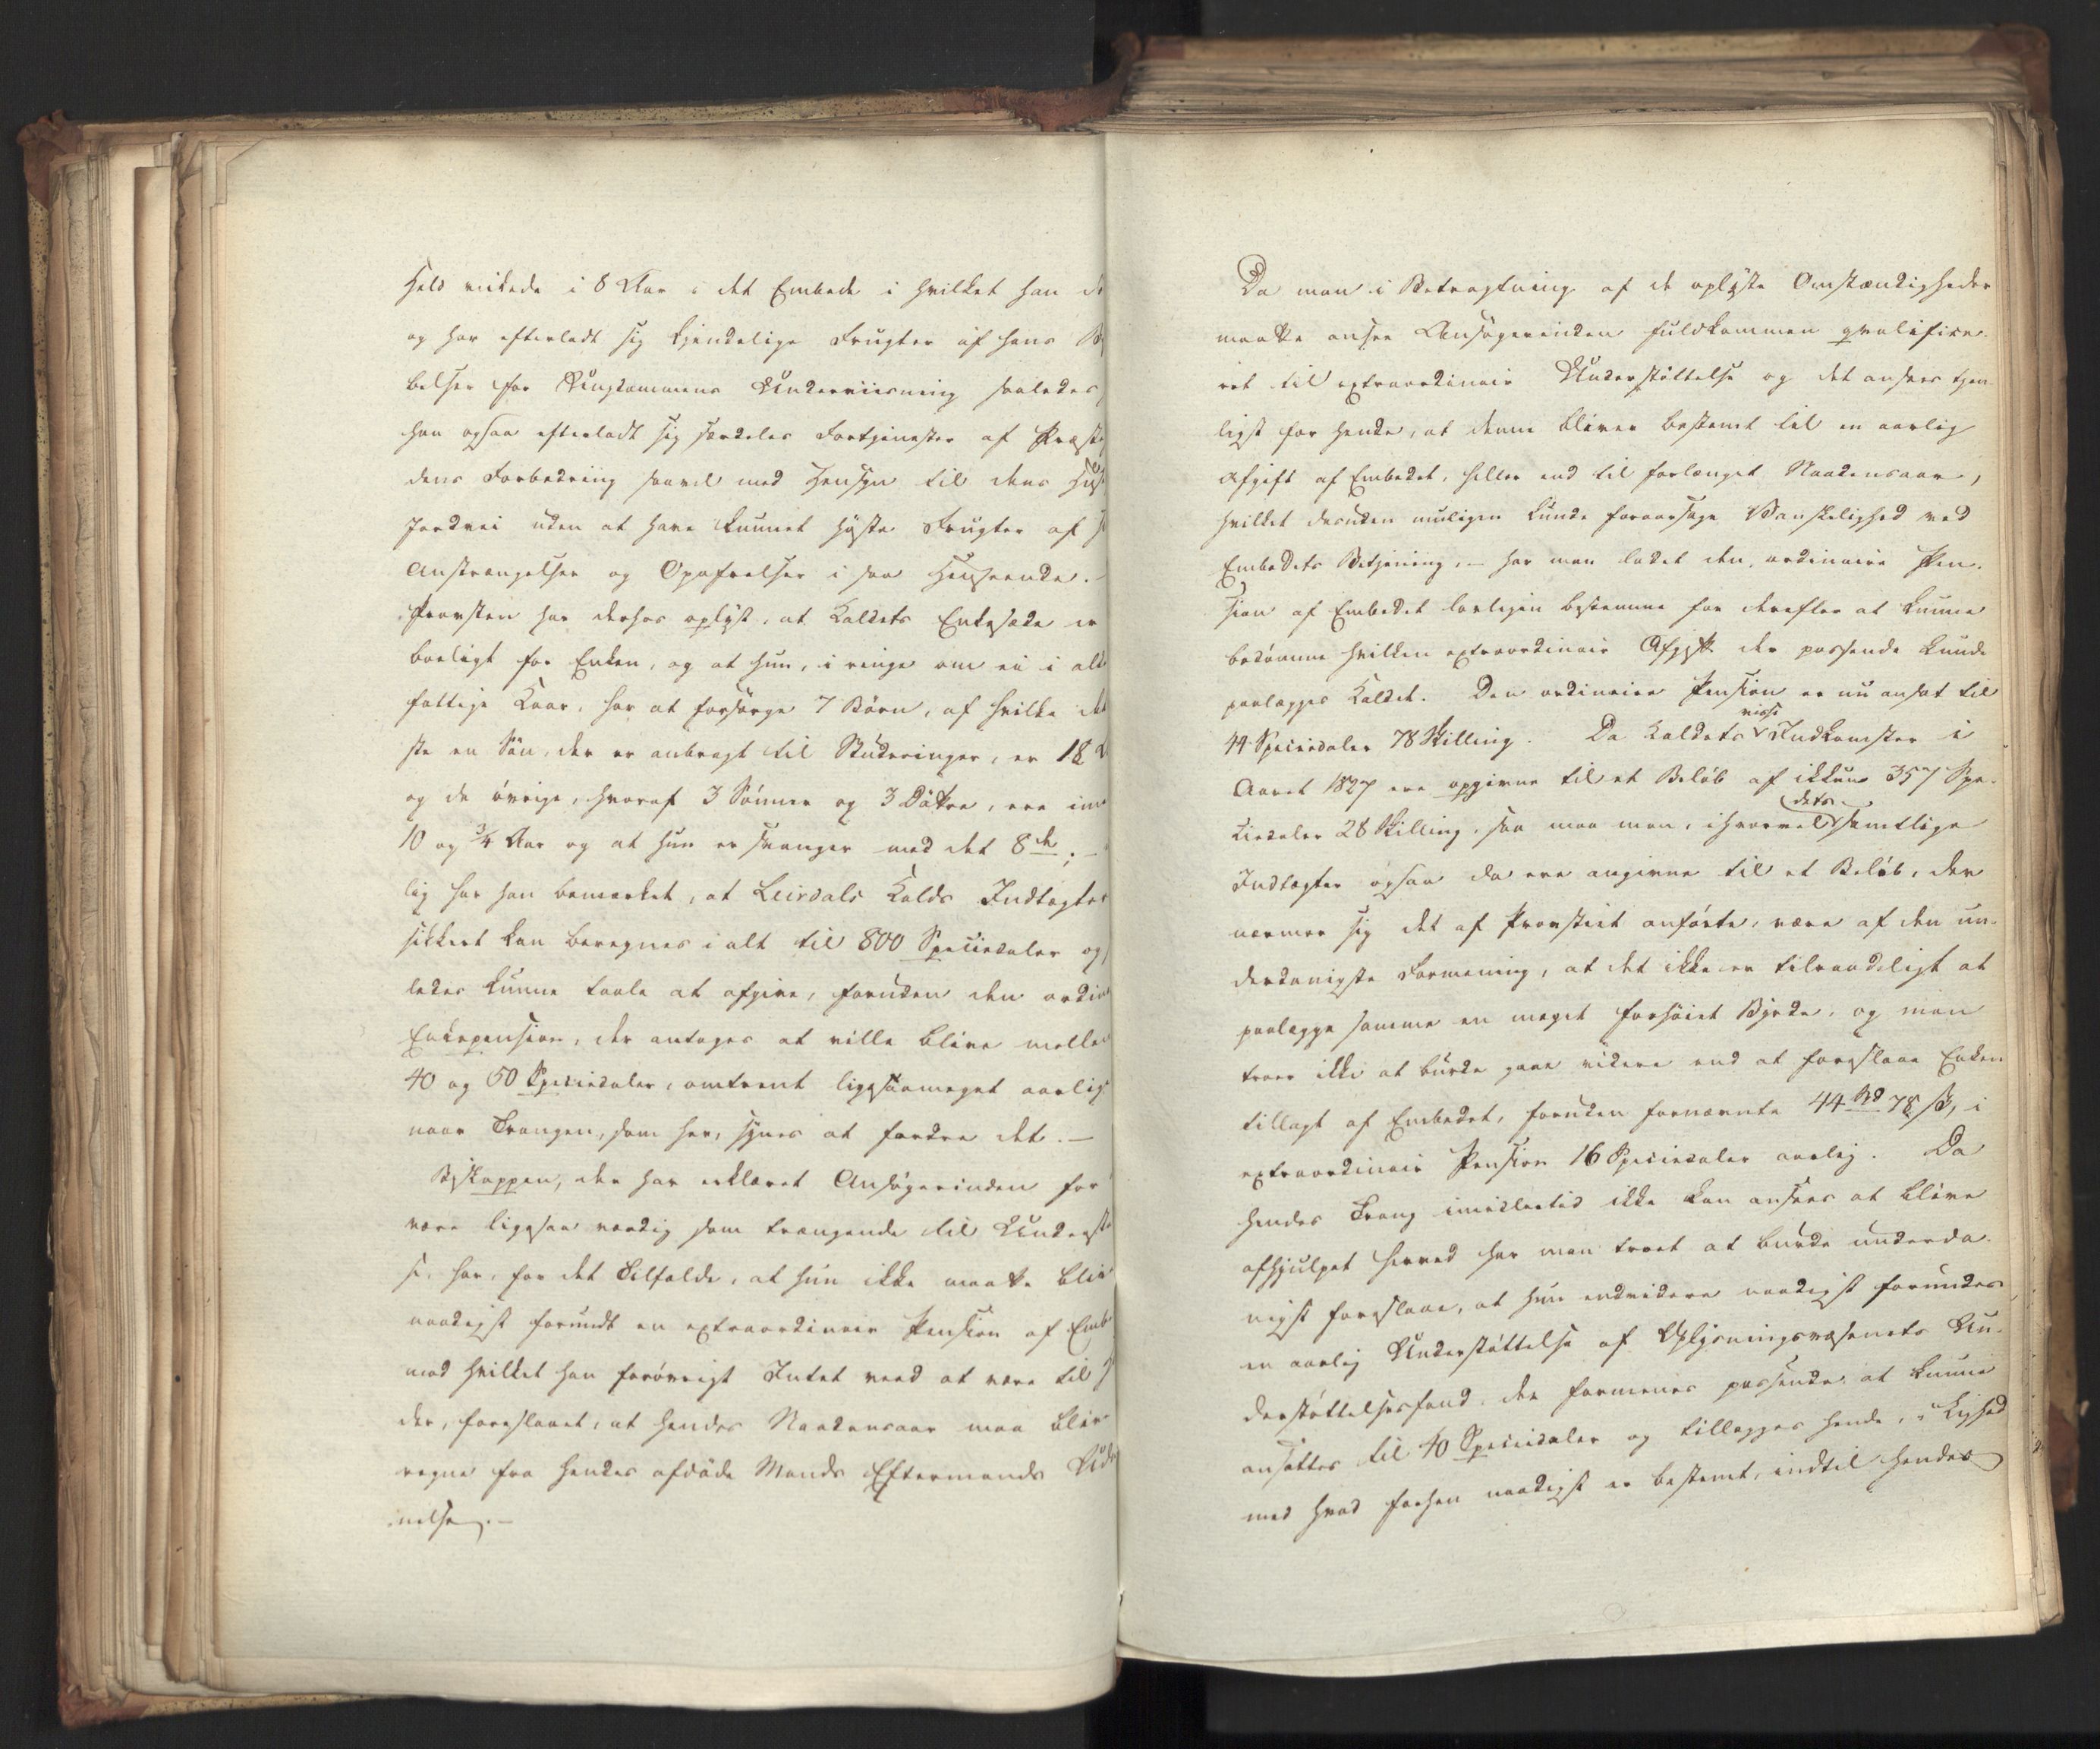 Held virkede i 8 Aar i det Embede i hvilket han d
og har efterladt sig kjendelige Frugter af hans B
belser for Ungdommens Underviisning saaledes
han ogsaa efterladt sig særdeles Fortjenester af Præste
dens Forbedring saavel med Hensyn til dens Huse
Jordvei uden at have kunnet høste Frugter af s
Anstrængelser og Opofrelser i saa Henseende.
Provsten har derhos oplyst, at Kaldets Enkesæde er
boeligt for Enken, og at hun, i ringe om ei i alde
fattige Kaar, har at forsørge 7 Børn, af hvilke det
ste en Søn, der er anbragt til Studeringer, er 18 A
og de øvrige, hvoraf 3 Sønner og 3 Døttre, ere im
10 og 3/4 Aar og at hun er svanger med det 8de; –
lig har han bemærket, at Leirdals Kalds Indtægter
sikkert kan beregnes i alt til 800 Speciedaler og
ledes kunne taale at afgive, foruden den ordin
Enkepension, der antages at ville blive mellem
40 og 50 Speciedaler, omtrent ligesaameget aarlig
naar Trangen, som her, synes at fordre det. –
Biskoppen, der har erklæret Ansøgerinden for
være ligesaa værdig som trængende til Underst
se, har, for det Tilfælde, at hun ikke maatte bliv
naadigst forundt en extraordinair Pension af Emb
mod hvilket han forøvrigt Intet veed at være til
der, foreslaaet, at hendes Naadensaar maa bliv
regne fra hendes afdøde Mands Eftermands Ud
nelse. –
Da man i Betragtning af de oplyste Omstændigheder
maatte ansee Ansøgerinden fuldkommen qvalifice-
ret til extraordinair Understøttelse og det ansees tjen
ligst for hende, at denne bliver bestemt til en aarlig
Afgift af Embedet, heller end til forlænget Naadensaar,
hvilket desuden muligen kunde foraarsage Vanskelighed ved
Embedets Betjening, – har man ladet den ordinaire Pen-
sion af Embedet lovligen bestemme for derefter at kunne
bedømme hvilken extraordinair Afgift der passende kunde
paalægges Kaldet. Den ordinaire Pension er nu ansat til
44 Speciedaler 78 Skilling. Da Kaldets visse Indkomster i
Aaret 1827 ere opgivne til et Beløb af ikkun 357 Spe-
ciedaler 28 Skilling, saa maa man, ihvorvel dets samtlige
Indtægter ogsaa da ere angivne til et Beløb, der
nærmer sig det af Provsten anførte, være af den un-
derdanigste Formening, at det ikke er tilraadeligt at
paalægge samme en meget forhøiet Byrde, og man
troer ikke at burde gaae videre end at foreslaae Enken
tillagt af Embedet, foruden fornævnte 44 Spd 78 ß, i
extraordinair Pension 16 Speciedaler aarlig. Da
hendes Trang imidlertid ikke kan ansees at blive
afhjulpet herved har man troet at burde underda-
nigst foreslaae, at hun endvidere naadigst forundes
en aarlig Understøttelse af Oplysningsvæsenets Un-
derstøttelsesfond, der formenes passende at kunne
ansættes til 40 Speciedaler og tillægges hende, i Lighed
med hvad forhen naadigst er bestemt, indtil hendes